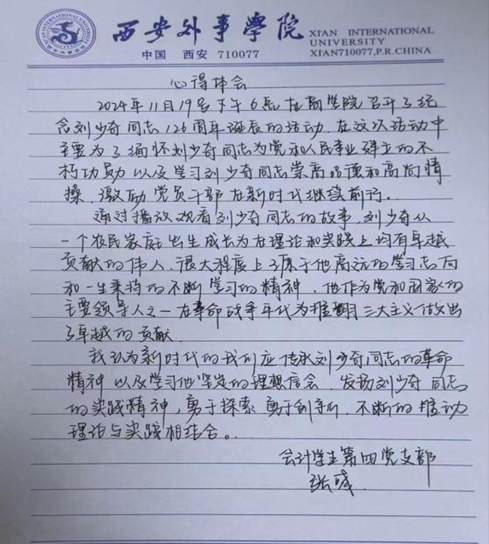 西安外事學院
XIAN INTERNATIONAL
UNIVERSITY
中国 西安 710077
XIAN710077,P.R.CHINA
心得体会
2024年11月19号下午6点在商学院召开了纪
念刘少奇同志126周年诞辰的活动,在这次活动中
主要为了缅怀刘少奇同志为党和人民事业建立的不
朽功勋以及学习刘少奇同志崇高品德和高尚情
操,激励党员干部在新时代继续前行。
通过播放观看刘少奇同志的故事,刘少奇从
一个农民家庭出生成长为在理论和实践上均有卓越
贡献的伟人,很大程度上源于他高远的学习志向
和一生秉持的不断学习的精神,他作为党和国家的
主要领导人之一在革命战争年代为推翻三大主义做出
了卓越的贡献.
我认为新时代的我们应传承刘少奇同志的革命
精神以及学习他坚定的理想信念,发扬刘少奇同志
的实践精神,勇于探索勇于创新,不断的推动
理论与实践相结合。
会计学生第四党支部
张